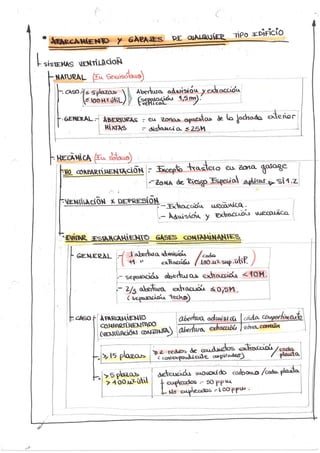 * APARCAMIENTO Y GARAJES DE CUALQUIER TIPO EDIFICIO
SISTEMAS VENTILACIÓN
- NATURAL
- CASO ≤ 5 plazas
≤ 100 m² útil
Abertura admisión y extracción
(separación vertical 1,5 m).
- GENERAL: ABERTURAS MIXTAS
- en zonas opuestas de la fachada exterior
- distancia ≤ 25M
- MECÁNICA
NO COMPARTIMENTACIÓN - Excepto trastero en zona garaje
- Zona de Riesgo Especial aplicar SI 1.2
- VENTILACIÓN X DEPRESIÓN
- Extracción mecánica.
- Admisión y extracción mecánica
- EVITAR ESTANCAMIENTO GASES CONTAMINANTES
- GENERAL - 1 abertura admisión
1 " extracción / cada 100 m² sup. útil
- separación aberturas extracción < 10M.
- 2/3 abertura extracción ≤ 0,5M.
(separación Techo)
- CASO APARCAMIENTO COMPARTIMENTADO (VENTILACIÓN CONJUNTA)
abertura admisión | cada compartimento
abertura extracción | zona común
≥ 15 plazas
≥ 2 redes de conductos extracción / cada planta
( aspirador)
> 5 plazas
> 100 m² útil
detección monóxido carbono / cada planta
- empleados - 50 ppm
- No empleados - 100 ppm.